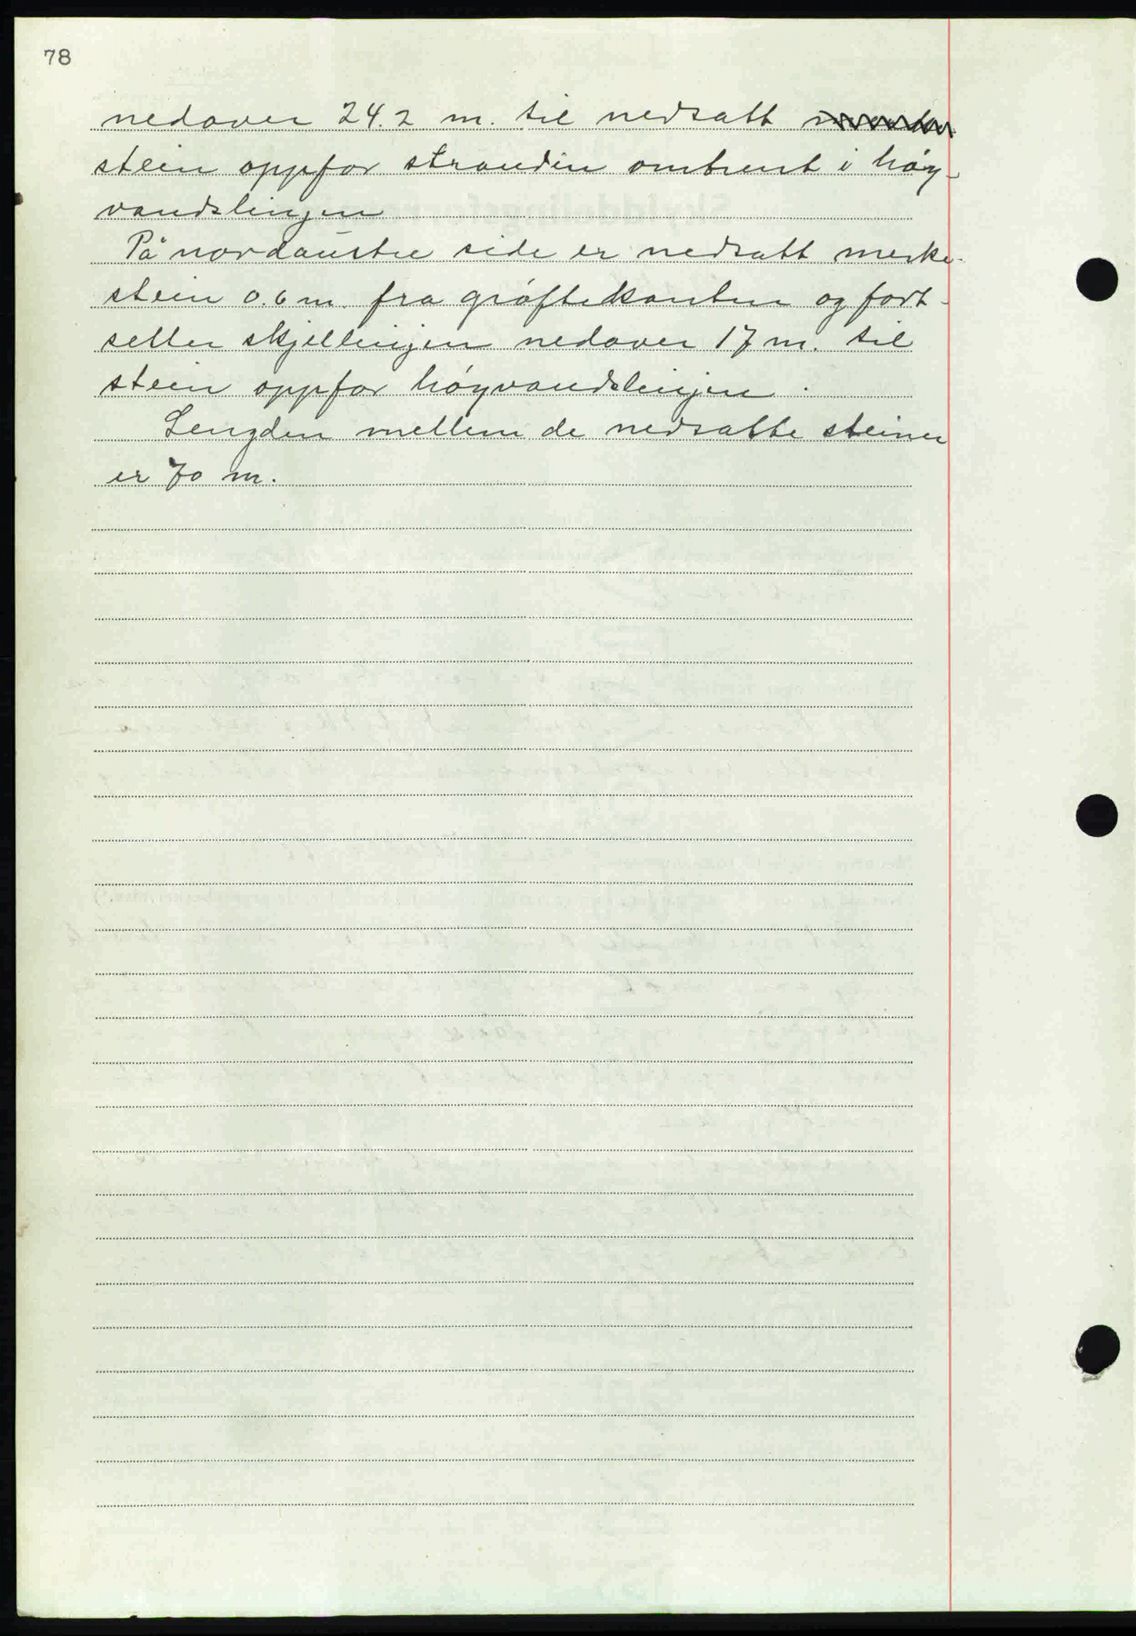 78
nedover 24.2 m. til nedsatt
stein oppfor strandin ombrent i høg-
vandslinjen
På nordaustre side er nedsatt merke-
stein 0.6 m. fra grøftekanten og fort-
setter skjellinjen nedover 17 m. til
stein oppfor høgvandslinjen.
Lengden mellem de nedsatte steiner
er 70 m.